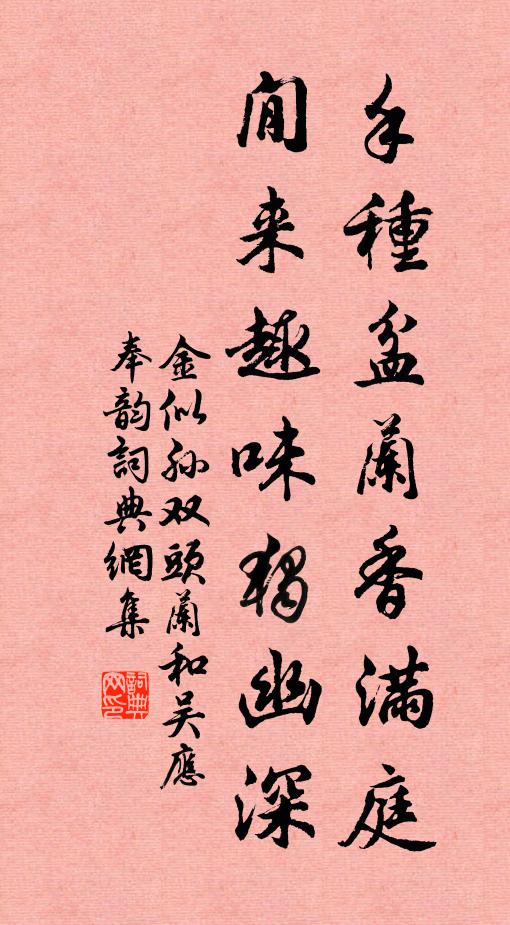 手種盆蘭香滿庭
閒来趣味獨幽深
金似孙双頭蘭和吴應
奉韵詞典網集
詞典網印